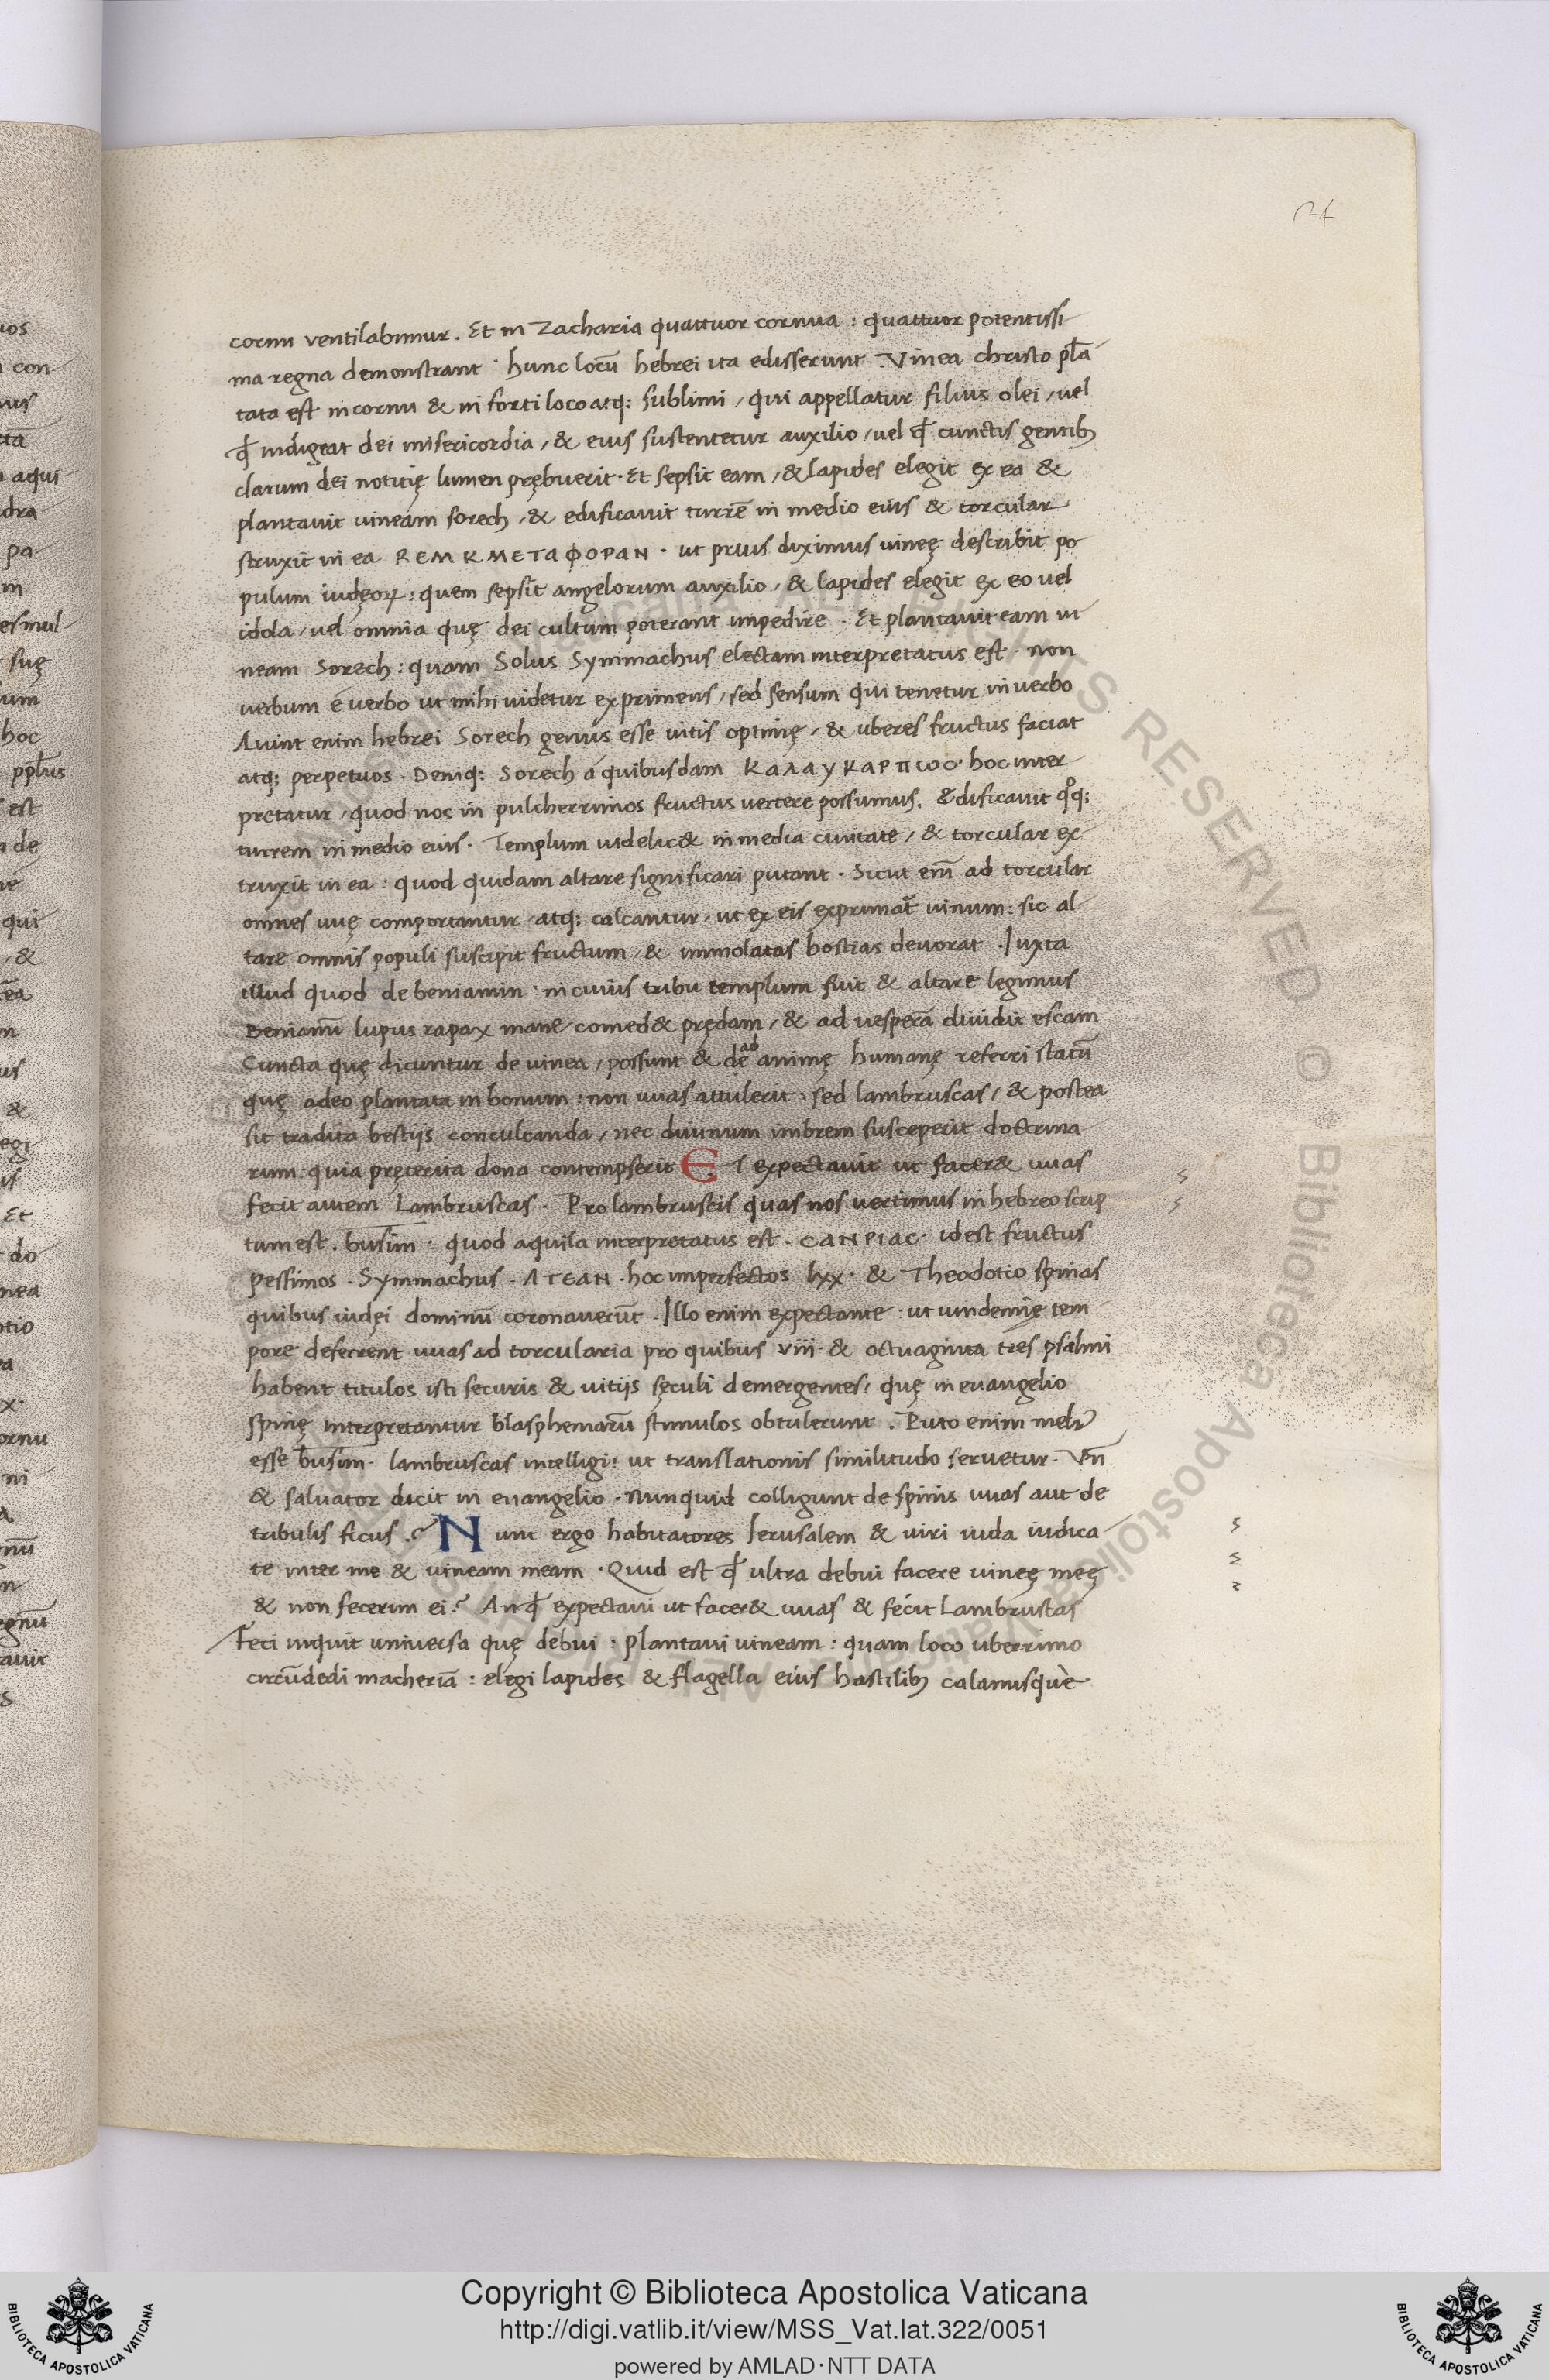 24
cornu ventilabimur. Et in Zacharia quattuor cornua : quattuor potentissi
ma regna demonstrant · hunc locū hebrei ita edisserunt . Vinea christo plā
tata est in cornu & in forti loco atq; sublimi / qui appellatur filius olei / vel
qđ indigeat dei misericordia / & eius sustentetur auxilio / vel qđ cunctis gentib;
clarum dei noticię lumen prębuerit · Et sepsit eam / & lapides elegit ex ea &
plantavit uineam sorech / & edificauit turrē in medio eius & torcular
struxit in ea REMKMETAΦOPAN · ut prius diximus uineę describit po
pulum iudęoꝝ : quem sepsit angelorum auxilio / & lapides elegit ex eo uel
idola / uel omnia quę dei cultum poterant impedire . Et plantauit eam ui
neam Sorech : quam Solus Symmachus electam interpretatus est · non
uerbum é verbo ut mihi uidetur exprimens / sed sensum qui tenetur in verbo
Aiunt enim hebrei Sorech genus esse uitis optimę / & uberes fructus faciat
atq; perpetuos . Deniq; Sorech á quibusdam ΚΑΛΑΥΚΑΡΠωC · hoc inter
pretatur / quod nos in pulcherrimos fructus vertere possumus. Ædificauit qͦq;
turrem in medio eius · Templum uidelic& in media ciuitate / & torcular ex
truxit in ea : quod quidam altare significari putant . Sicut em̄ ad torcular
omnes uuę comportantur / atq; calcantur / ut ex eis exprimat᷑ uinum : sic al
tare omnis populi suscipit fructum / & immolatas hostias devorat . Iuxta
illud quod de beniamin : in cuius tribu templum fuit & altare legimus
Beniamī lupus rapax mane comed& prędam / & ad vesperā diuidit escam
Cuncta quę dicuntur de vinea / possunt & de ad animę humanę referri statū
quę adeo plantata in bonum : non uuas attulerit · sed lambruscas / & postea
sit tradita bestijs conculcanda / nec diuinum imbrem susceperit doctrina
rum : quia pręterita dona contempserit ET expectauit ut facer& uuas
fecit autem Lambruscas . Pro lambruscis quas nos uertimus in hebreo scrip
tum est . busim : quod aquila interpretatus est . CANPIAC · idest fructus
pessimos . Symmachus . ΛTEAN . hoc imperfectos lxx · & Theodotio spinas
quibus iudęi dominū coronauerūt . Illo enim expectante : ut uindemię tem
pore deferrent uuas ad torcularia pro quibus viii · & octuaginta tres psalmi
habent titulos isti securis & uitijs sęculi demergentes / quę in euangelio
spinę interpretantur blasphemarū stimulos obtulerunt . Puto enim meli᷑
esse busim · lambruscas intelligi : ut translationis similitudo servetur . Vñ
& salvator dicit in evangelio . Nunquid colligunt de spinis uuas aut de
tribulis ficus .? Nunc ergo habitatores Ierusalem & uiri iuda iudica
te inter me & uineam meam . Quid est qđ ultra debui facere uineę meę
& non fecerim ei ? An qđ expectaui ut facer& uuas & fécit Lambruscas
Feci inquit universa quę debui : plantaui uineam : quam loco uberrimo
circūdedi maceriā : elegi lapides & flagella eius hastilib; calamisquè
Copyright © Biblioteca Apostolica Vaticana
http://digi.vatlib.it/view/MSS_Vat.lat.322/0051
powered by AMLAD·NTT DATA